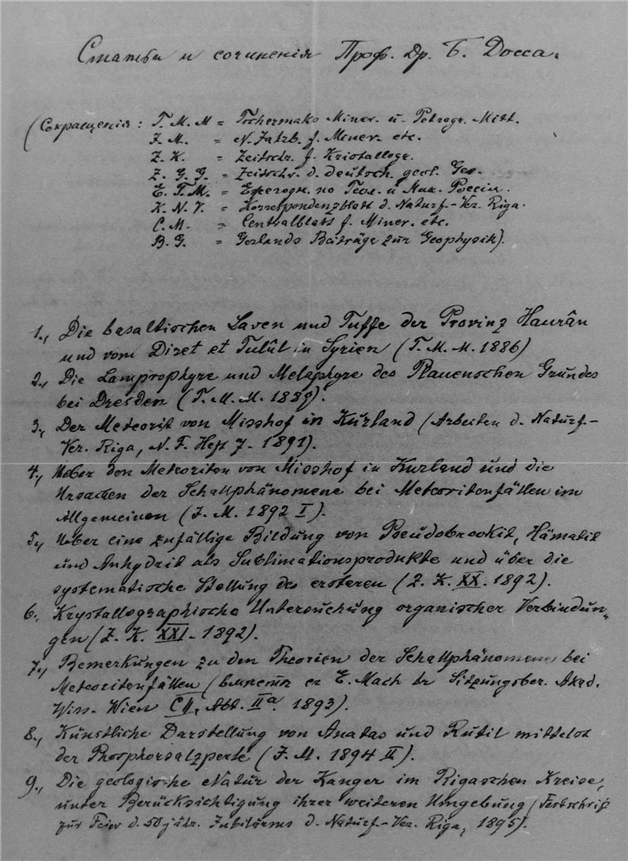 Статьи и сочиненія Проф. Др. Б. Досса.
(Сокращенія: T. M. M = Tschermaks Miner. u. Petrogr. Mitt.
J. M. = N. Jahrb. f. Miner. etc.
Z. K. = Zeitschr. f. Kristallogr.
Z. G. G. = Zeitschr. d. Deutsch. geol. Ges.
Е. Г. М. = Ежегодн. по Геол. и Мин. Россіи.
K. N. V. = Korrespondenzblatt d. Naturf.-Ver. Riga.
C. M. = Centralblatt f. Miner. etc.
B. G. = Gerlands Beiträge zur Geophysik).
1., Die basaltischen Laven und Tuffe der Provinz Haurân
und vom Diret et Tulûl in Syrien (T. M. M. 1886)
2., Die Lamprophyre und Melaphyre des Plauenschen Grundes
bei Dresden (T. M. M. 1889).
3., Der Meteorit von Misshof in Kurland (Arbeiten d. Naturf.-
Ver. Riga, N. F. Heft 7 - 1891).
4., Ueber den Meteoriten von Misshof in Kurland und die
Ursachen der Schallphänomene bei Meteoritenfällen im
Allgemeinen (J. M. 1892 I).
5., Ueber eine zufällige Bildung von Pseudobrookit, Hämatit
und Anhydrit als Sublimationsprodukte und über die
systematische Stellung des ersteren (Z. K. XX. 1892).
6., Krystallographische Untersuchung organischer Verbindun-
gen (Z. K. XXI - 1892).
7., Bemerkungen zu den Theorien der Schallphänomene bei
Meteoritenfällen (вмѣстѣ съ E. Mach въ Sitzungsber. Akad.
Wiss. Wien CII, Abt. IIa. 1893).
8., Künstliche Darstellung von Anatas und Rutil mittelst
der Phosphorsalzperle (J. M. 1894 II).
9., Die geologische Natur der Kanger im Rigaschen Kreise,
unter Berücksichtigung ihrer weiteren Umgebung (Festschrift
zur Feier d. 50 jähr. Jubiläums d. Naturf.-Ver. Riga, 1895).